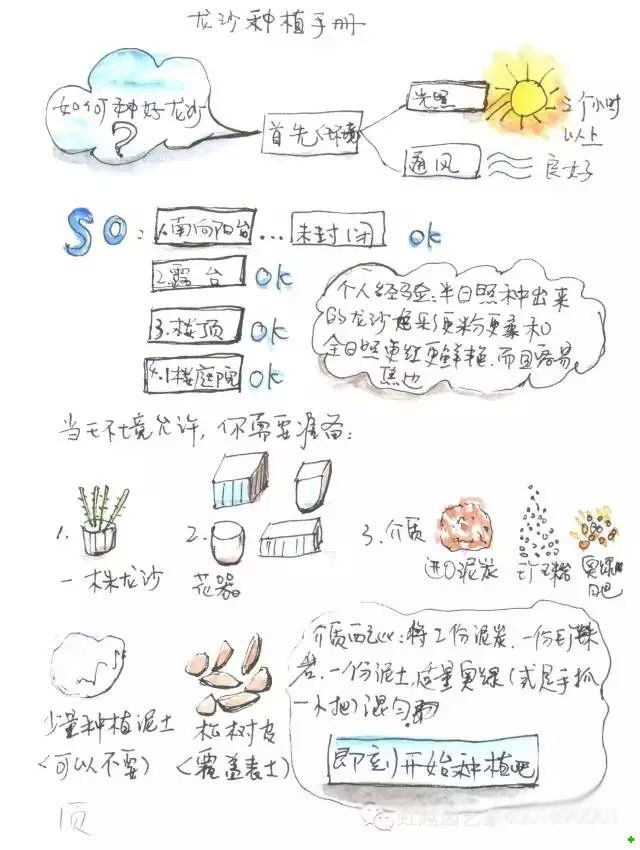 龙沙种植手册
如何种好龙沙
?
首先环境
光照
三个小时
以上
通风
良好
SO:
1.南向阳台...未封闭 OK
2.露台 OK
3.楼顶 OK
4.1楼庭院 OK
个人经验:半日照种出来
的龙沙 更粉更柔和
全日照更红更鲜艳.而且容易
焦边
当环境允许,你需要准备:
1.
一株龙沙
2.
花器
3.介质
进口泥炭
珍珠岩
奥绿肥
少量种植泥土
(可以不要)
松树皮
(覆盖表土)
介质配比:将2份泥炭.一份珍珠
岩.一份泥土,适量奥绿(或是手抓
一小把)混匀
即刻开始种植吧
虹越园艺家4001870001